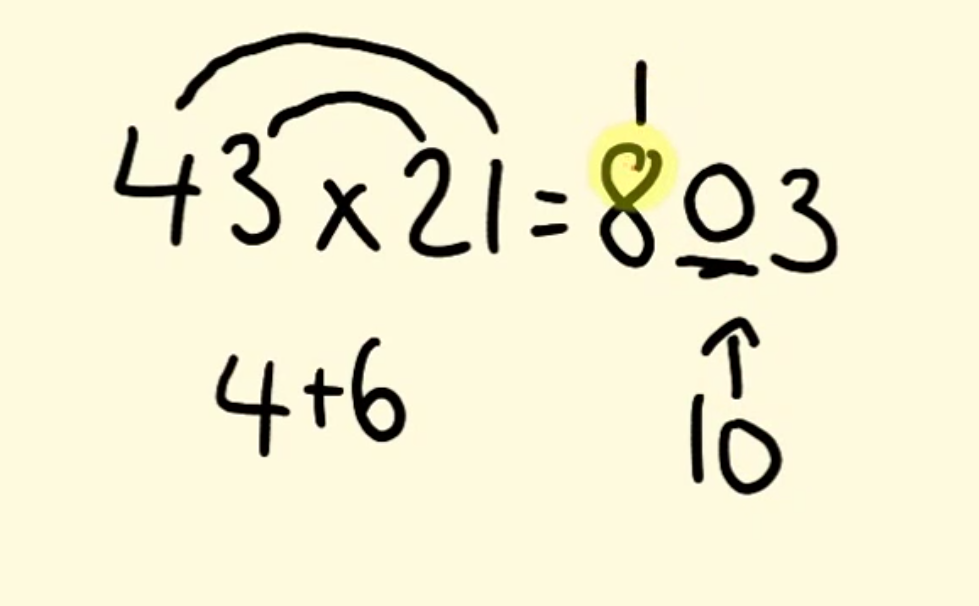 1
43 x 21 = 803
4+6
10